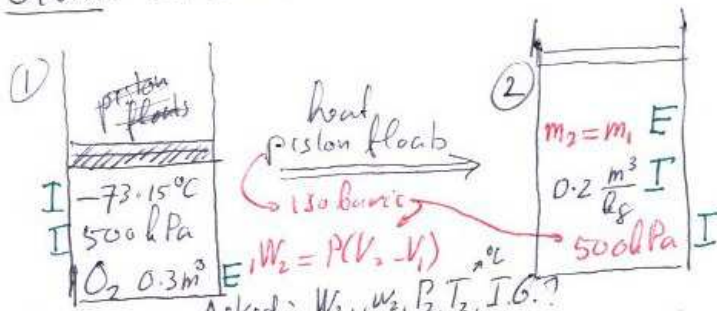 ①
piston
floats
-73.15°C
I
500kPa
I
O₂ 0.3m³ E
heat
piston floats
isobaric
₁W₂ = P(V₂-V₁)
②
m₂ = m₁ E
0.2 m³/kg I
500kPa I
°C
Asked: W₂, ₁w₂, P₂, T₂, I.G.?